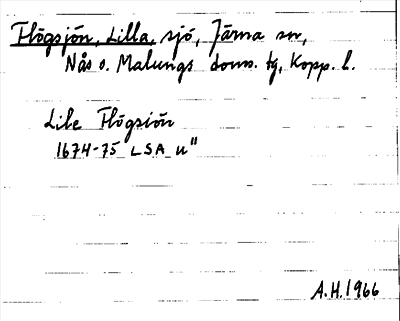 Flögsjön, Lilla, sjö, Järna sn,
Nås o. Malungs doms. tg, Kopp. l.
Lile Flögsiön
1674-75 LSA u"
A.H. 1966